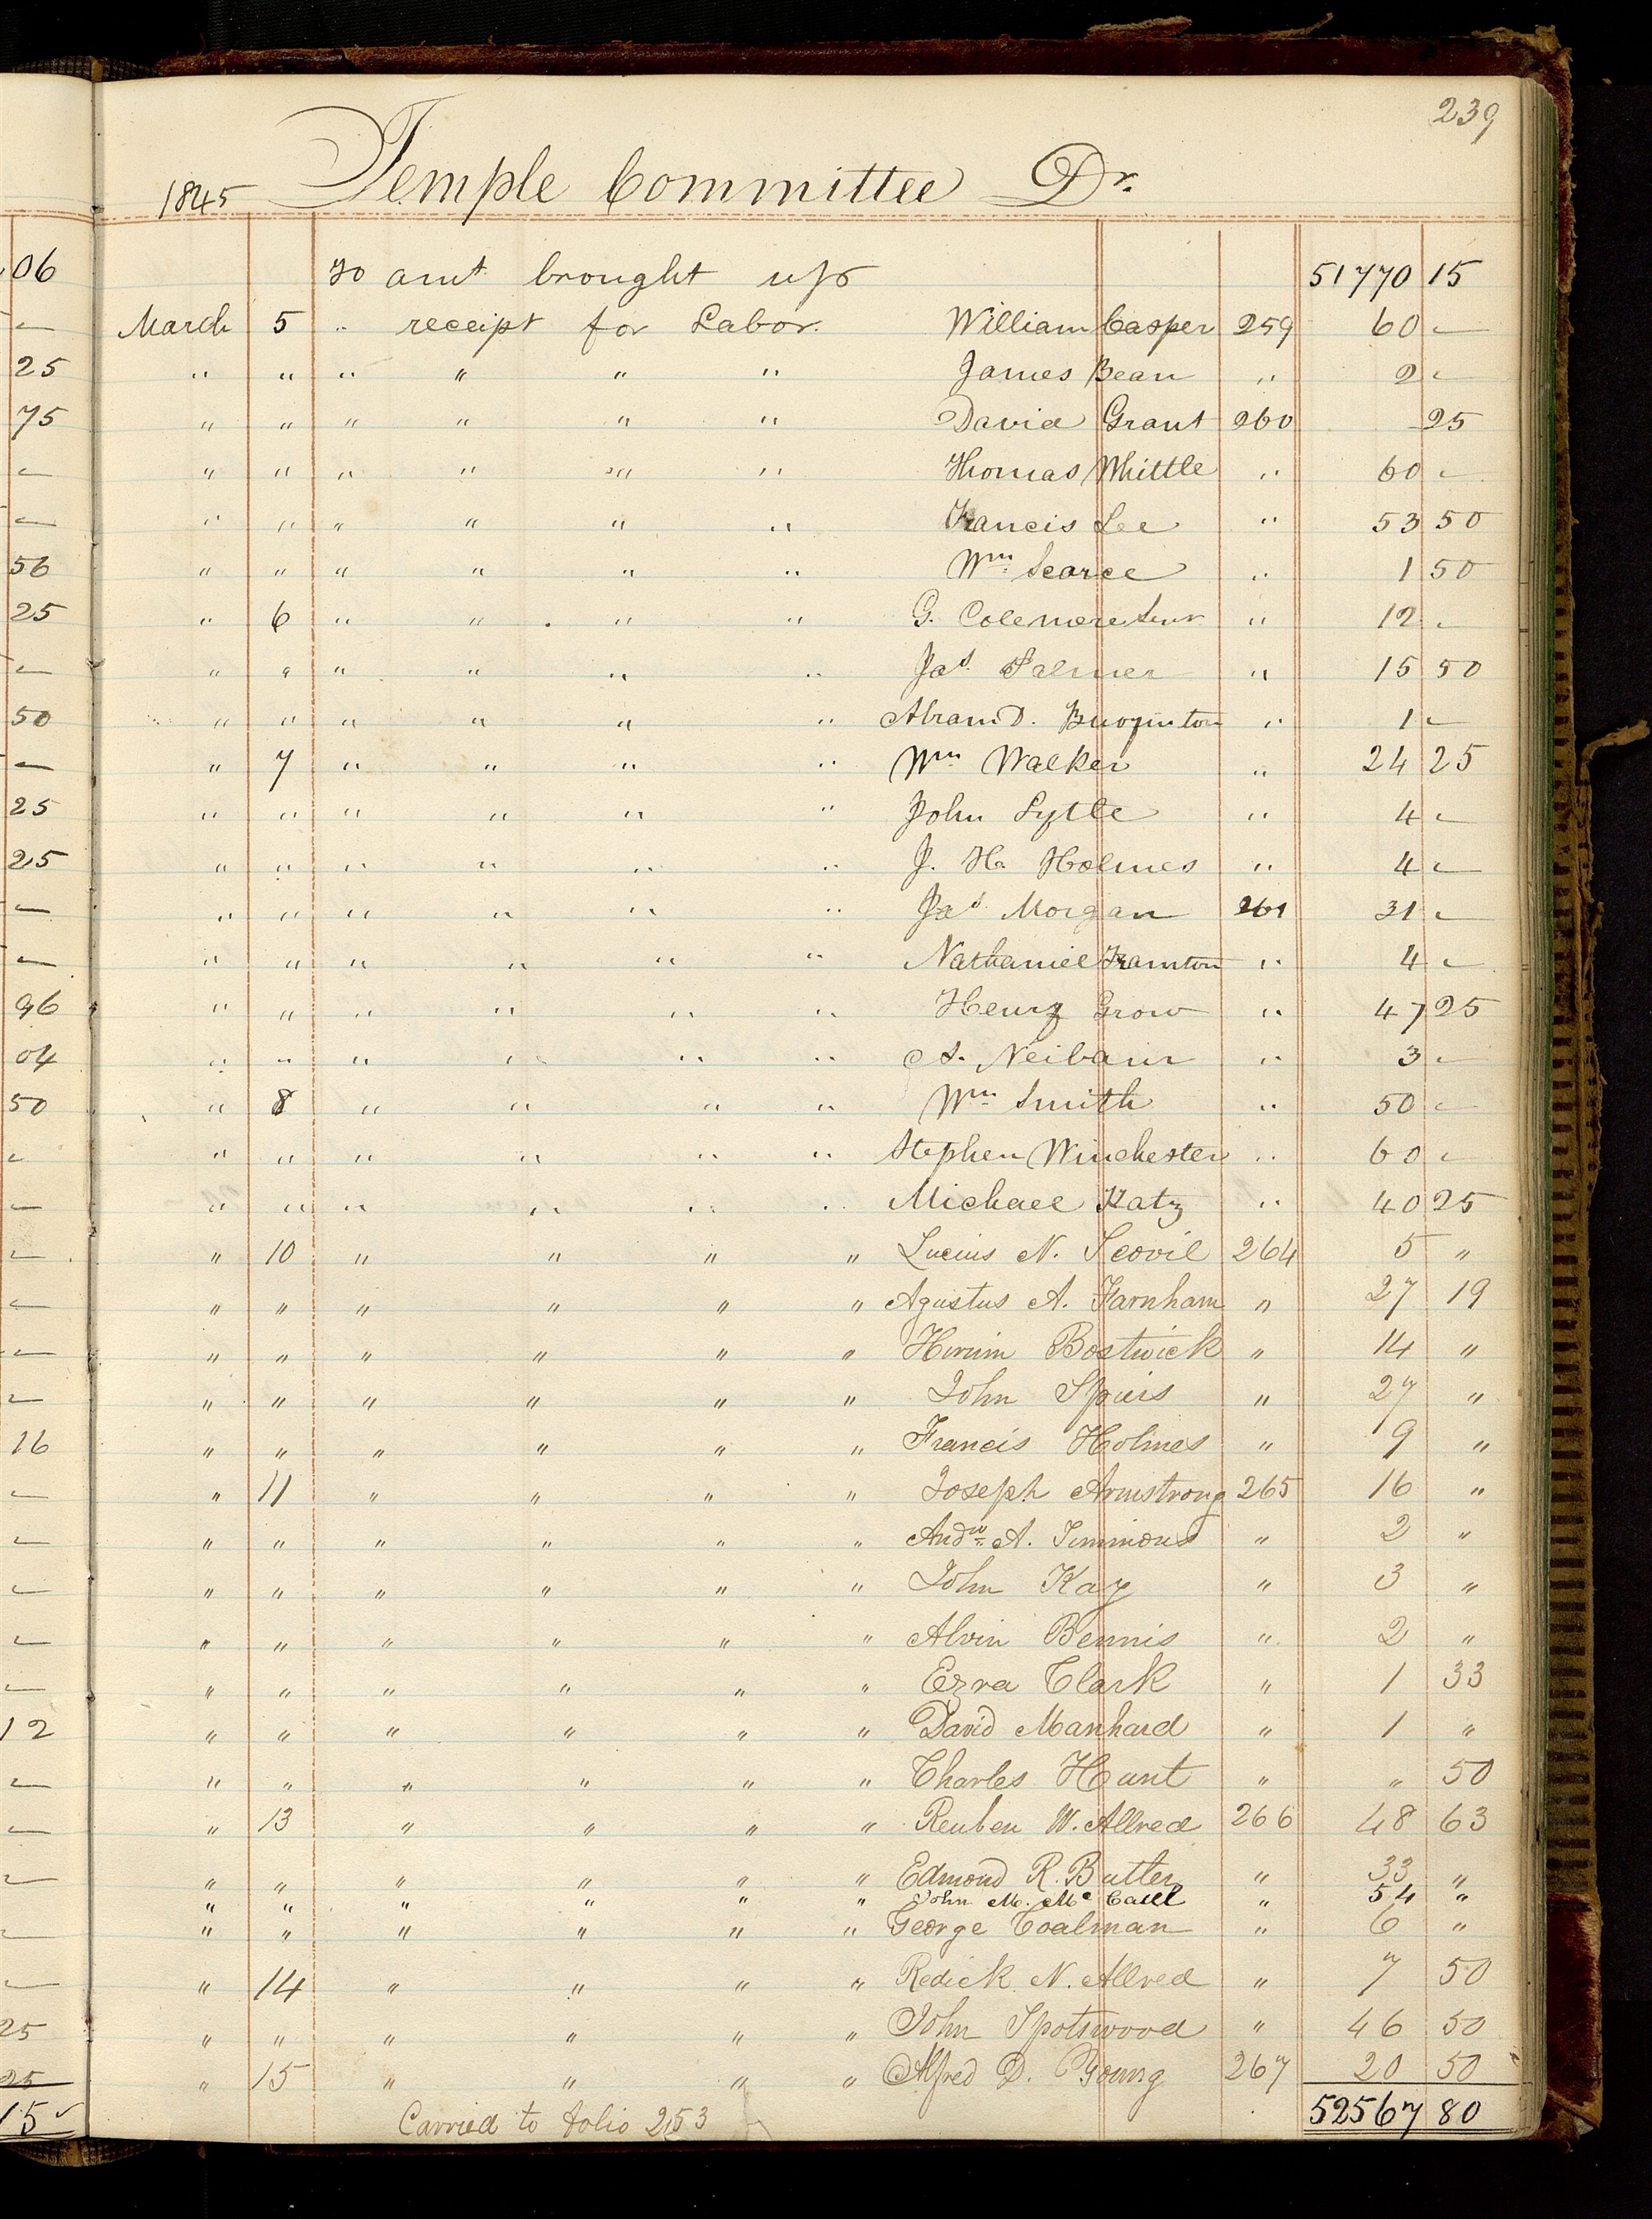 239
1845 Temple Committee Dr.
To amt brought up 51770 15
06
March 5 " receipt for Labor. William Casper 259 60 –
–
" " " " " " James Bean " 2 –
25
" " " " " " David Grant 260 25
75
" " " " " " Thomas Whittle " 60 –
–
" " " " " " Francis Lee " 53 50
–
" " " " " " Wm Searce " 1 50
56
" 6 " " " " G. Colemere Senr " 12 –
25
" " " " " " Jas. Palmer " 15 50
–
" " " " " " Abram D. " 1 –
50
" 7 " " " " Wm Walker " 24 25
–
" " " " " " John Lytle " 4 –
25
" " " " " " J. H. Holmes " 4 –
25
" " " " " " Jas Morgan 261 31 –
–
" " " " " " Nathaniel Framton " 4 –
–
" " " " " " Henry Grow " 47 25
96
" " " " " " A. Neibaur " 3 –
04
" 8 " " " " Wm Smith " 50 –
50
" " " " " " Stephen Winchester " 60 –
–
" " " " " " Michael Katz " 40 25
–
" 10 " " " " Lucius N. Scovil 264 5 "
–
" " " " " " Agustus A. Farnham " 27 19
–
" " " " " " Hirum Bostwick " 14 "
–
" " " " " " John Spiers " 27 "
–
" " " " " " Francis Holmes " 9 "
16
" 11 " " " " Joseph Armstrong 265 16 "
–
" " " " " " Andw A. Timmons " 2 "
–
" " " " " " John Kay " 3 "
–
" " " " " " Alvin Bennis " 2 "
–
" " " " " " Ezra Clark " 1 33
–
" " " " " " David Manhard " 1 "
12
" " " " " " Charles Hunt " " 50
–
" 13 " " " " Reuben W. Allred 266 48 63
–
" " " " " " Edmond R. Butler " 33 "
–
" " " " " " John M. Mc Caul " 54 "
" " " " " " George Coalman " 6 "
–
" 14 " " " " Redick N. Allred " 7 50
–
" " " " " " John Spotswood " 46 50
25
" 15 " " " " Alfred D. Young 267 20 50
25
Carried to folio 253 52567 80
15